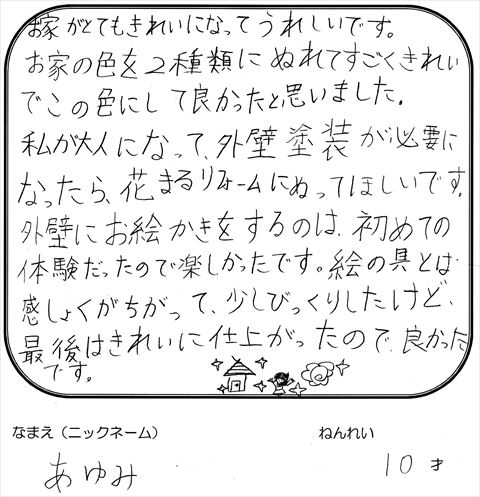 お家がとてもきれいになってうれしいです。
お家の色を2種類にぬれてすごくきれい
でこの色にして良かったと思いました。
私が大人になって、外壁塗装が必要に
なったら、花まるリフォームにぬってほしいです。
外壁にお絵かきをするのは、初めての
体験だったので楽しかったです。絵の具とは
感しょくがちがって、少しびっくりしたけど、
最後はきれいに仕上がったので、良かった
です。
なまえ(ニックネーム)
ねんれい
あゆみ
10才